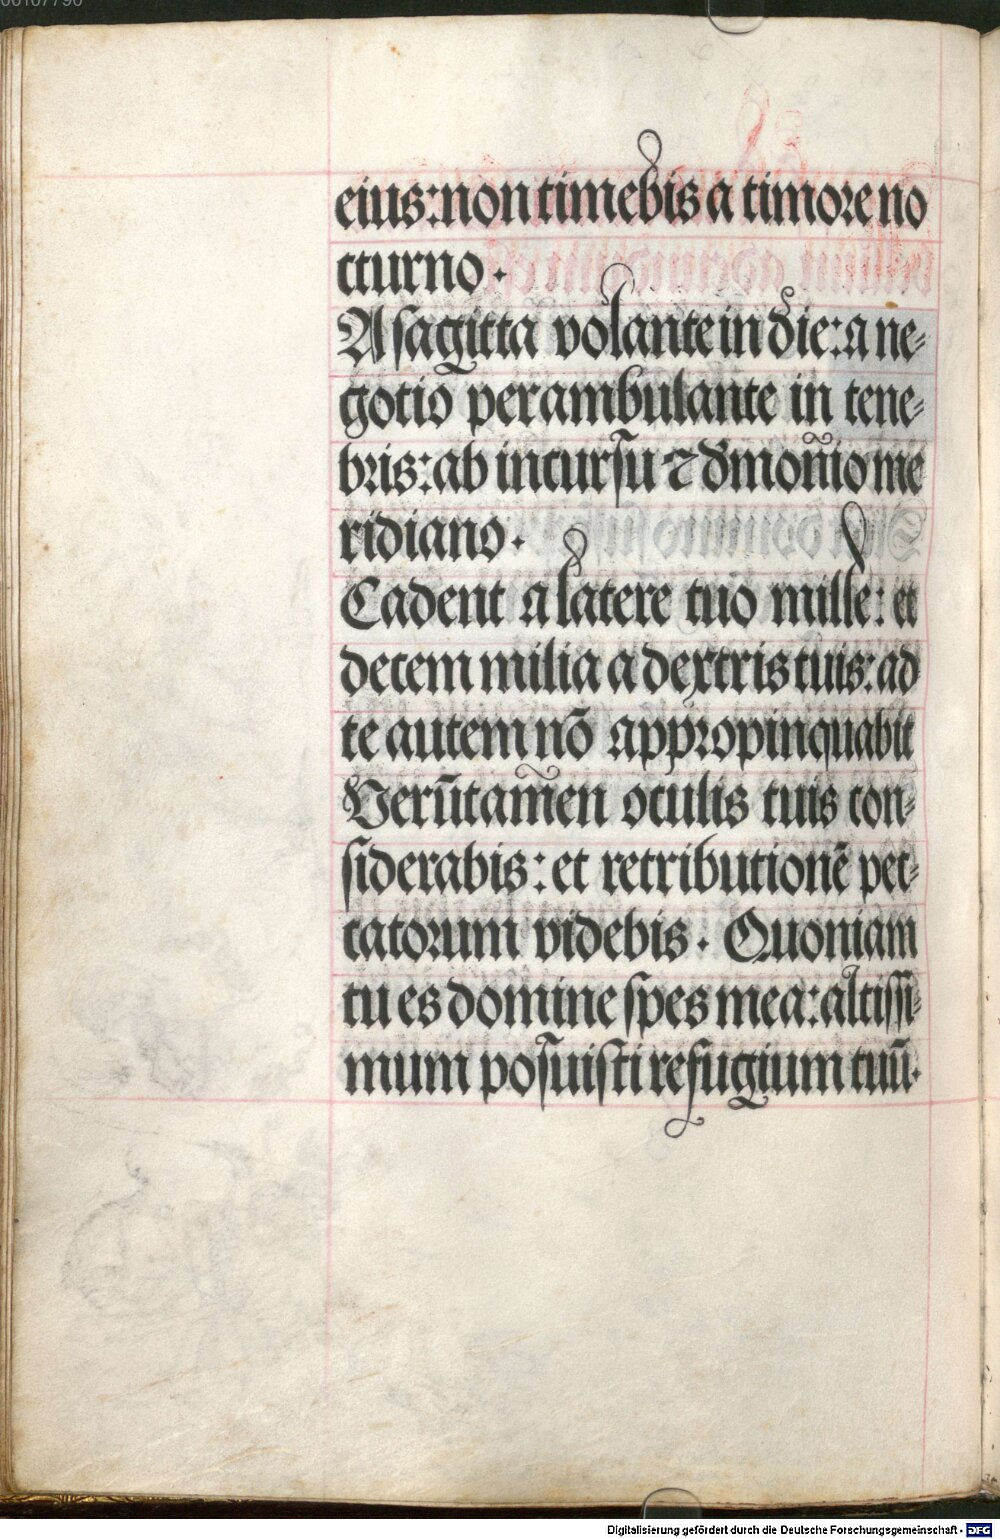 00107790
eius: non timebis a timore no
cturno.
A sagitta volante in die: a ne-
gotio perambulante in tene-
bris: ab incursu ⁊ dmoñio me
ridiano.
Cadent a latere tuo mille: et
decem milia a dextris tuis: ad
te autem nō appropinquabit
Verūtamen oculis tuis con-
siderabis: et retributionē pec-
catorum videbis. Quoniam
tu es domine spes mea: altissi-
mum posuisti refugium tuū.
Digitalisierung gefördert durch die Deutsche Forschungsgemeinschaft - DFG